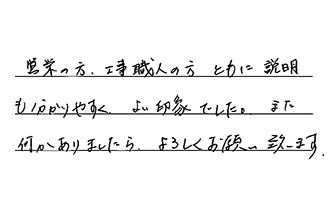 営業の方、工事職人の方 ともに 説明
も分かりやすく、よい印象でした。また
何かありましたら、よろしくお願い致します。